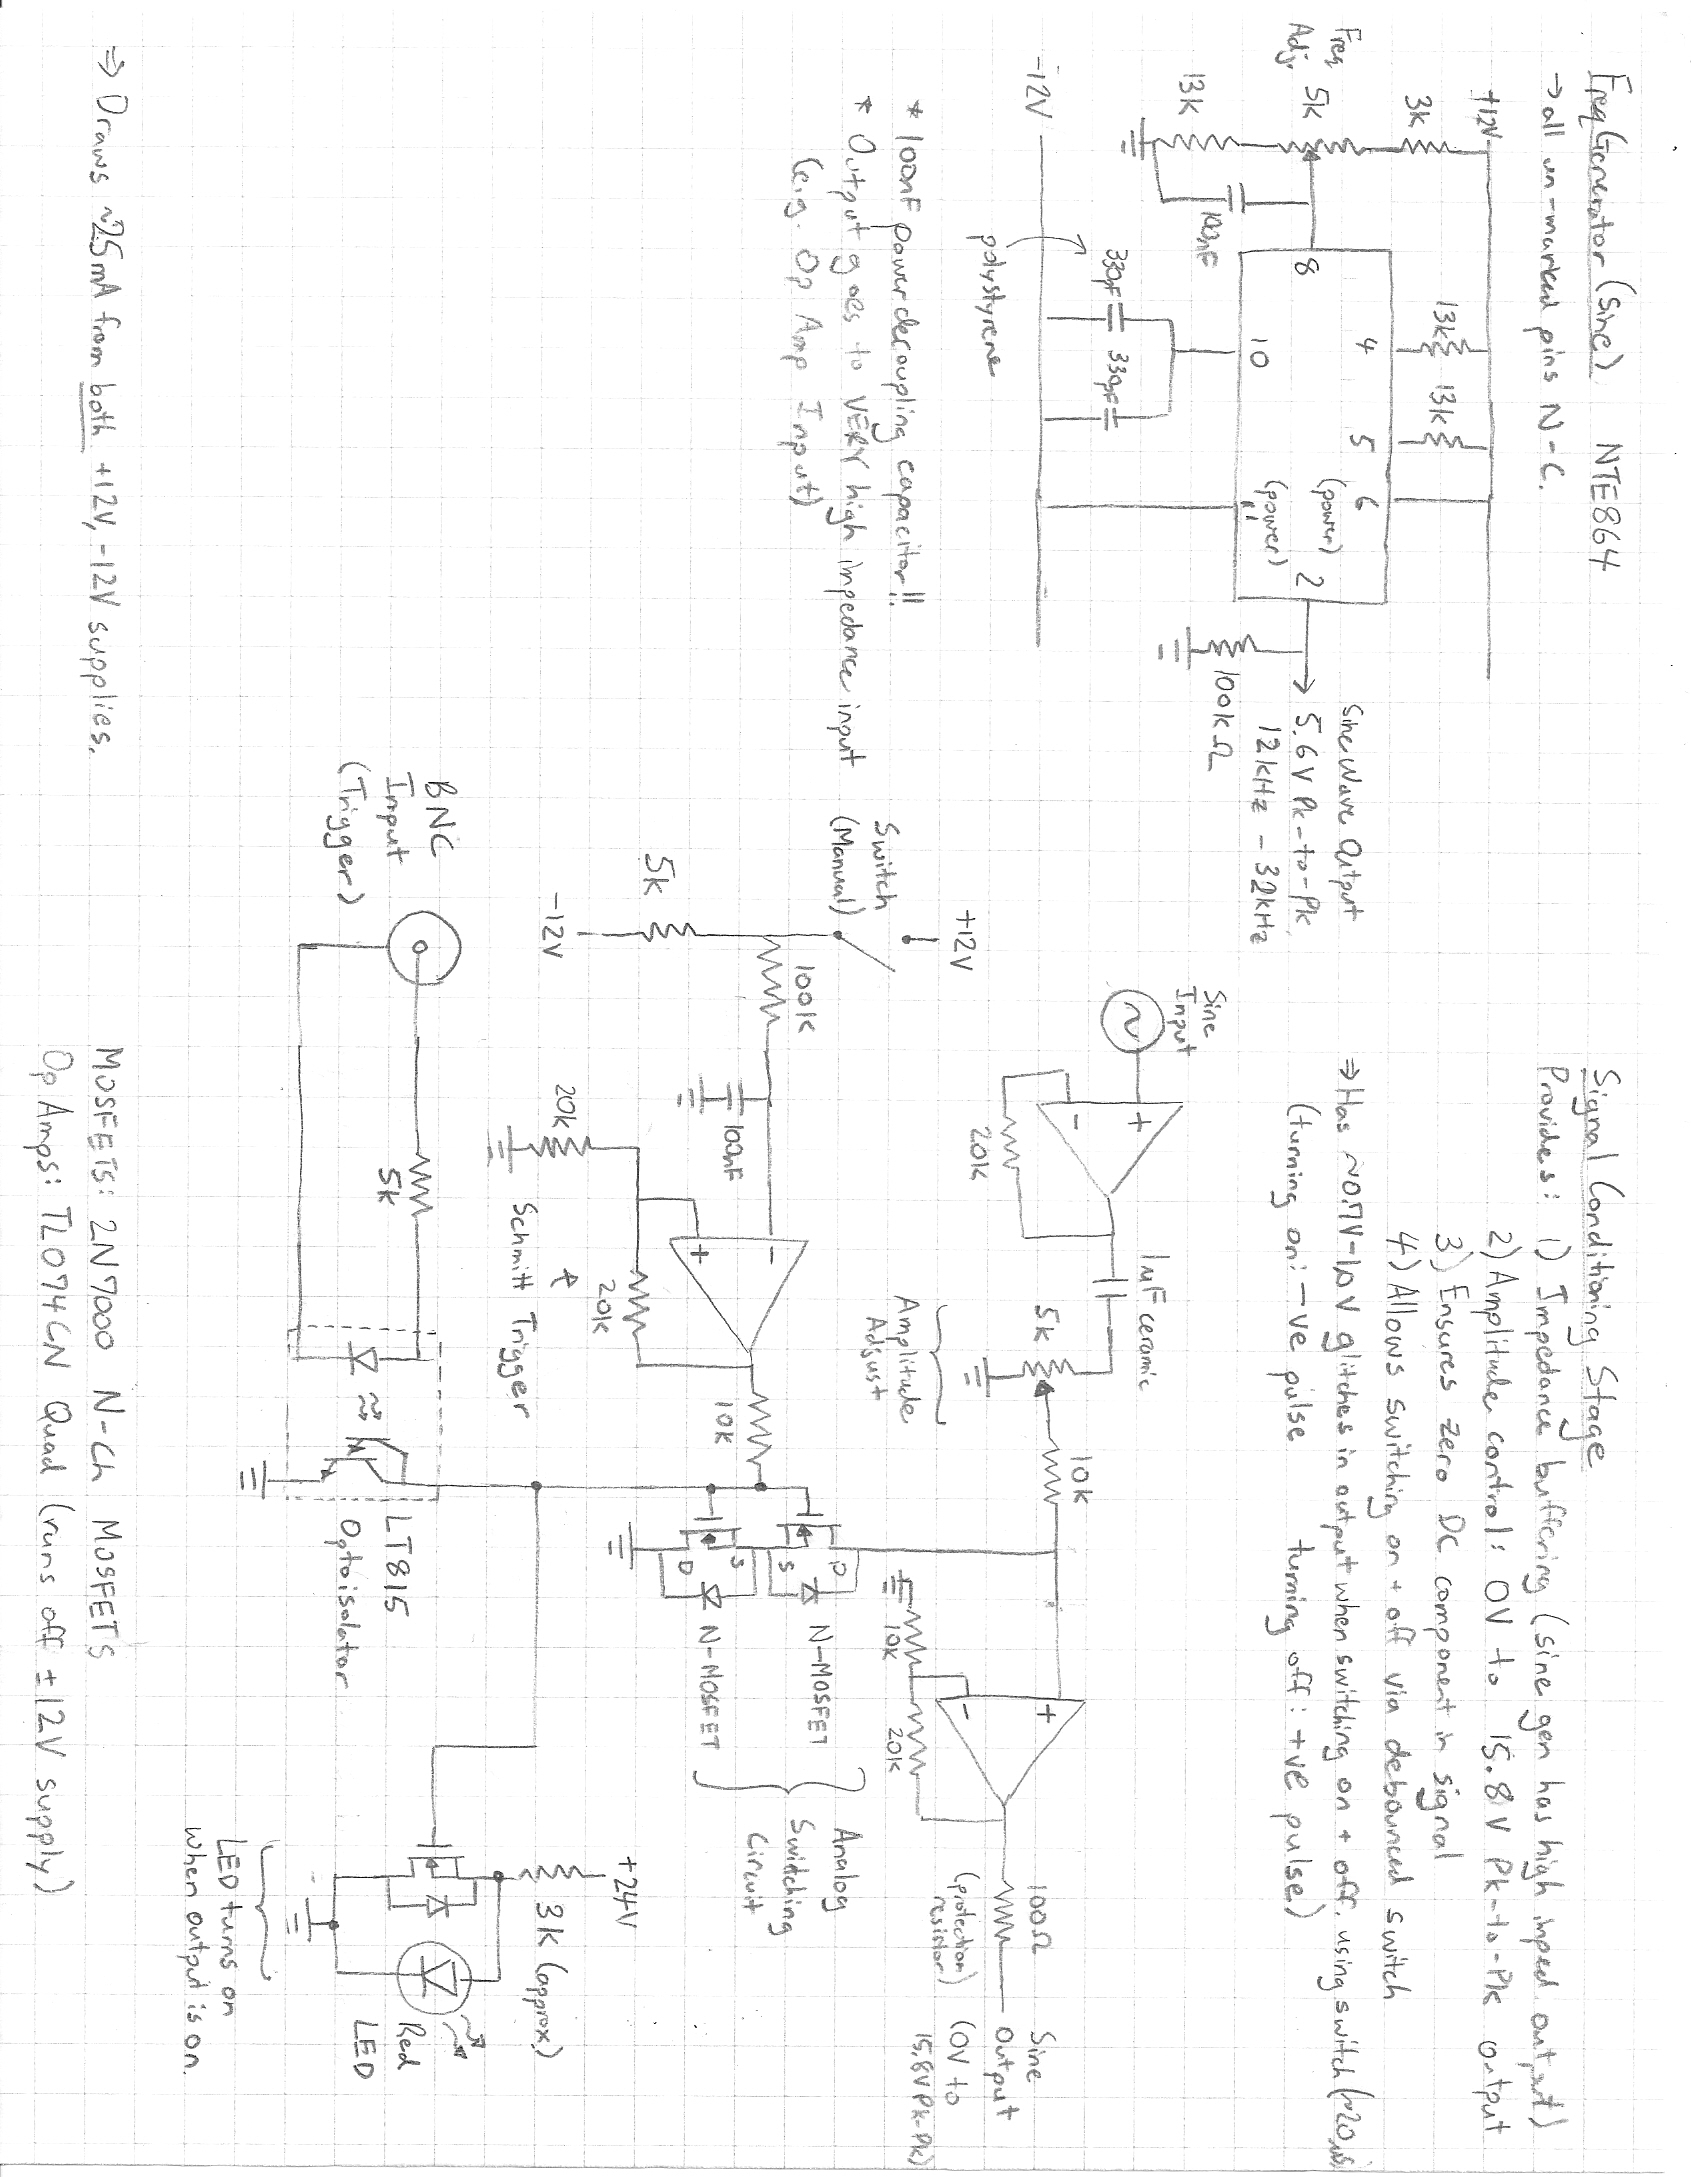 Freq Generator (Sine) NTE864
→ all un-marked pins N-C.
+12V
3k
Freq
Adj.
5k
13k
100nF
-12V
13k
13k
4
5
6
8
(power)
2
10
11
(power)
330pF
330pF
polystyrene
100kΩ
Sine Wave Output
5.6V Pk-to-Pk
12kHz - 32kHz
* 100nF power decoupling capacitor!!
* Output goes to VERY high impedance input
(e.g. Op Amp Input)
⇒ Draws ~25mA from both +12V, -12V supplies.
Signal Conditioning Stage
Provides: 1) Impedance buffering (sine gen has high imped output)
2) Amplitude control: 0V to 15.8V Pk-to-Pk output
3) Ensures zero DC component in signal
4) Allows switching on + off via debounced switch
⇒ Has ~0.7V-1.0V glitches in output when switching on + off, using switch (~20us)
(turning on: -ve pulse turning off: +ve pulse)
Sine
Input
+
-
20k
1uF ceramic
5k
Amplitude
Adjust
10k
+
-
10k
20k
100Ω
(protection)
resistor
Sine
Output
(0V to
15.8V Pk-Pk)
+12V
Switch
(Manual)
5k
-12V
100k
100nF
-
+
20k
20k
Schmitt Trigger
10k
D
S
S
D
N-MOSFET
N-MOSFET
Analog
Switching
Circuit
BNC
Input
(Trigger)
5k
LT815
Optoisolator
+24V
3k (approx)
Red
LED
LED turns on
when output is on
MOSFETS: 2N7000 N-Ch MOSFETS
Op Amps: TL074CN Quad (runs off ±12V supply)